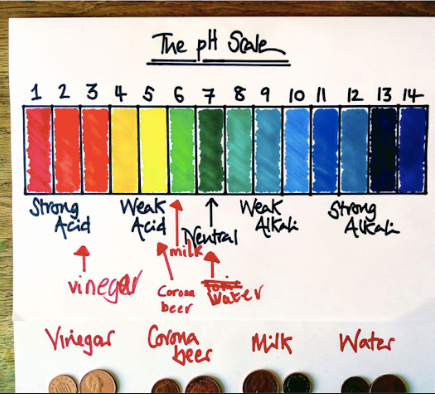 The pH Scale
1 2 3 4 5 6 7 8 9 10 11 12 13 14
Strong Acid
Weak Acid
Neutral
Weak Alkali
Strong Alkali
vinegar
Corona beer
milk
Water
Vinegar
Corona beer
Milk
Water